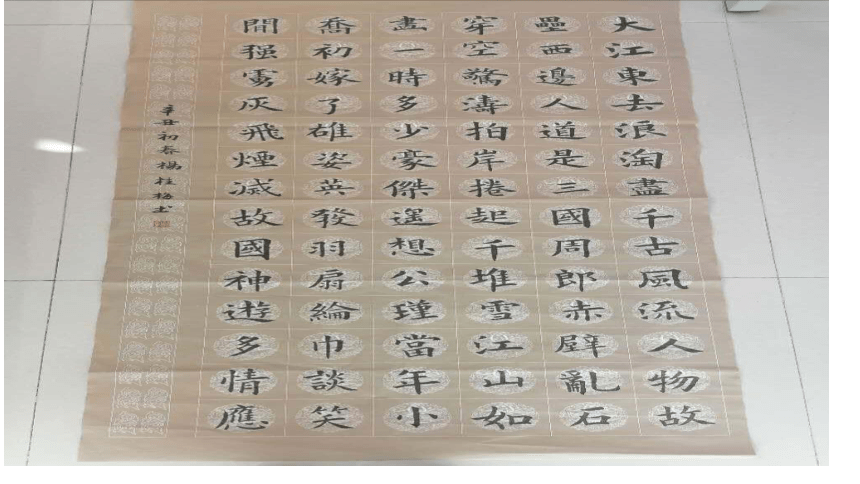 大江東去浪淘盡千古風流人物故
壘西邊人道是三國周郎赤壁亂石
穿空驚濤拍岸捲起千堆雪江山如
畫一時多少豪傑遥想公瑾當年小
喬初嫁了雄姿英發羽扇綸巾談笑
間强虜灰飛煙滅故國神遊多情應
辛丑初春楊桂梅书